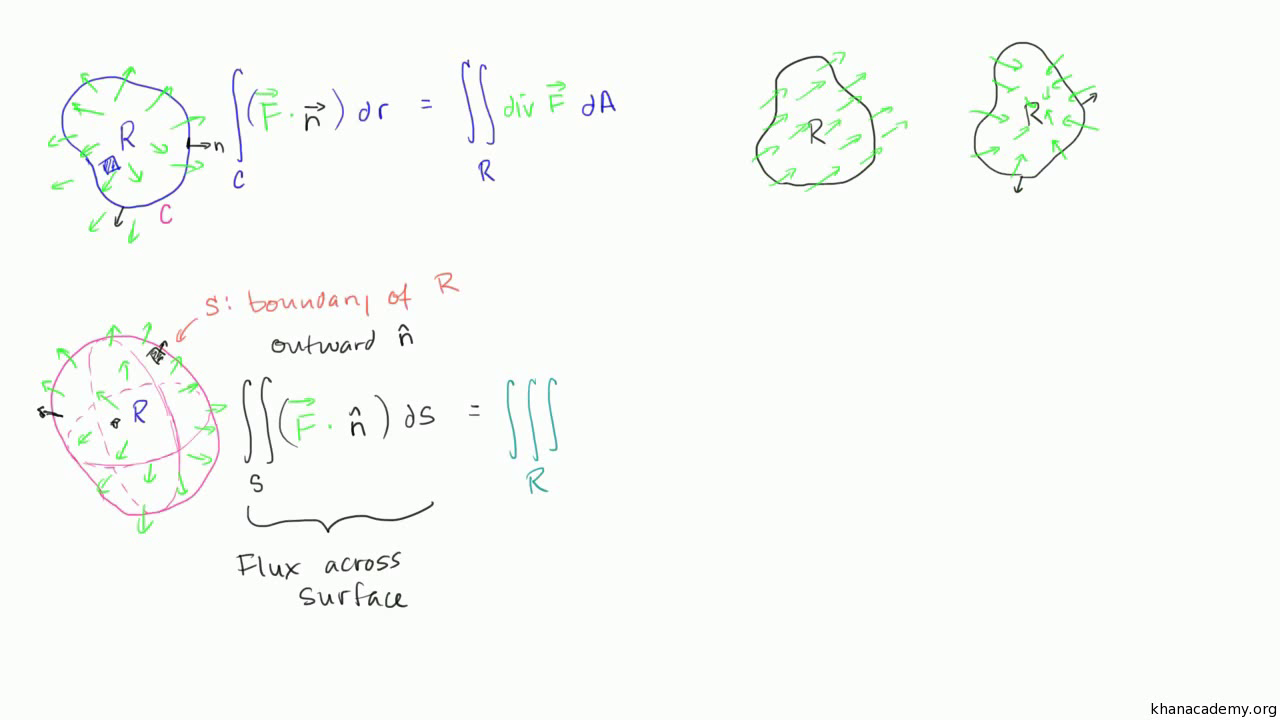 R
n
C
∫ (F⃗ · n⃗) dr = ∬ div F⃗ dA
C
R
R
R
S: boundary of R
outward n̂
R
∬ (F⃗ · n̂) dS = ∭
S
R
Flux across
surface
khanacademy.org